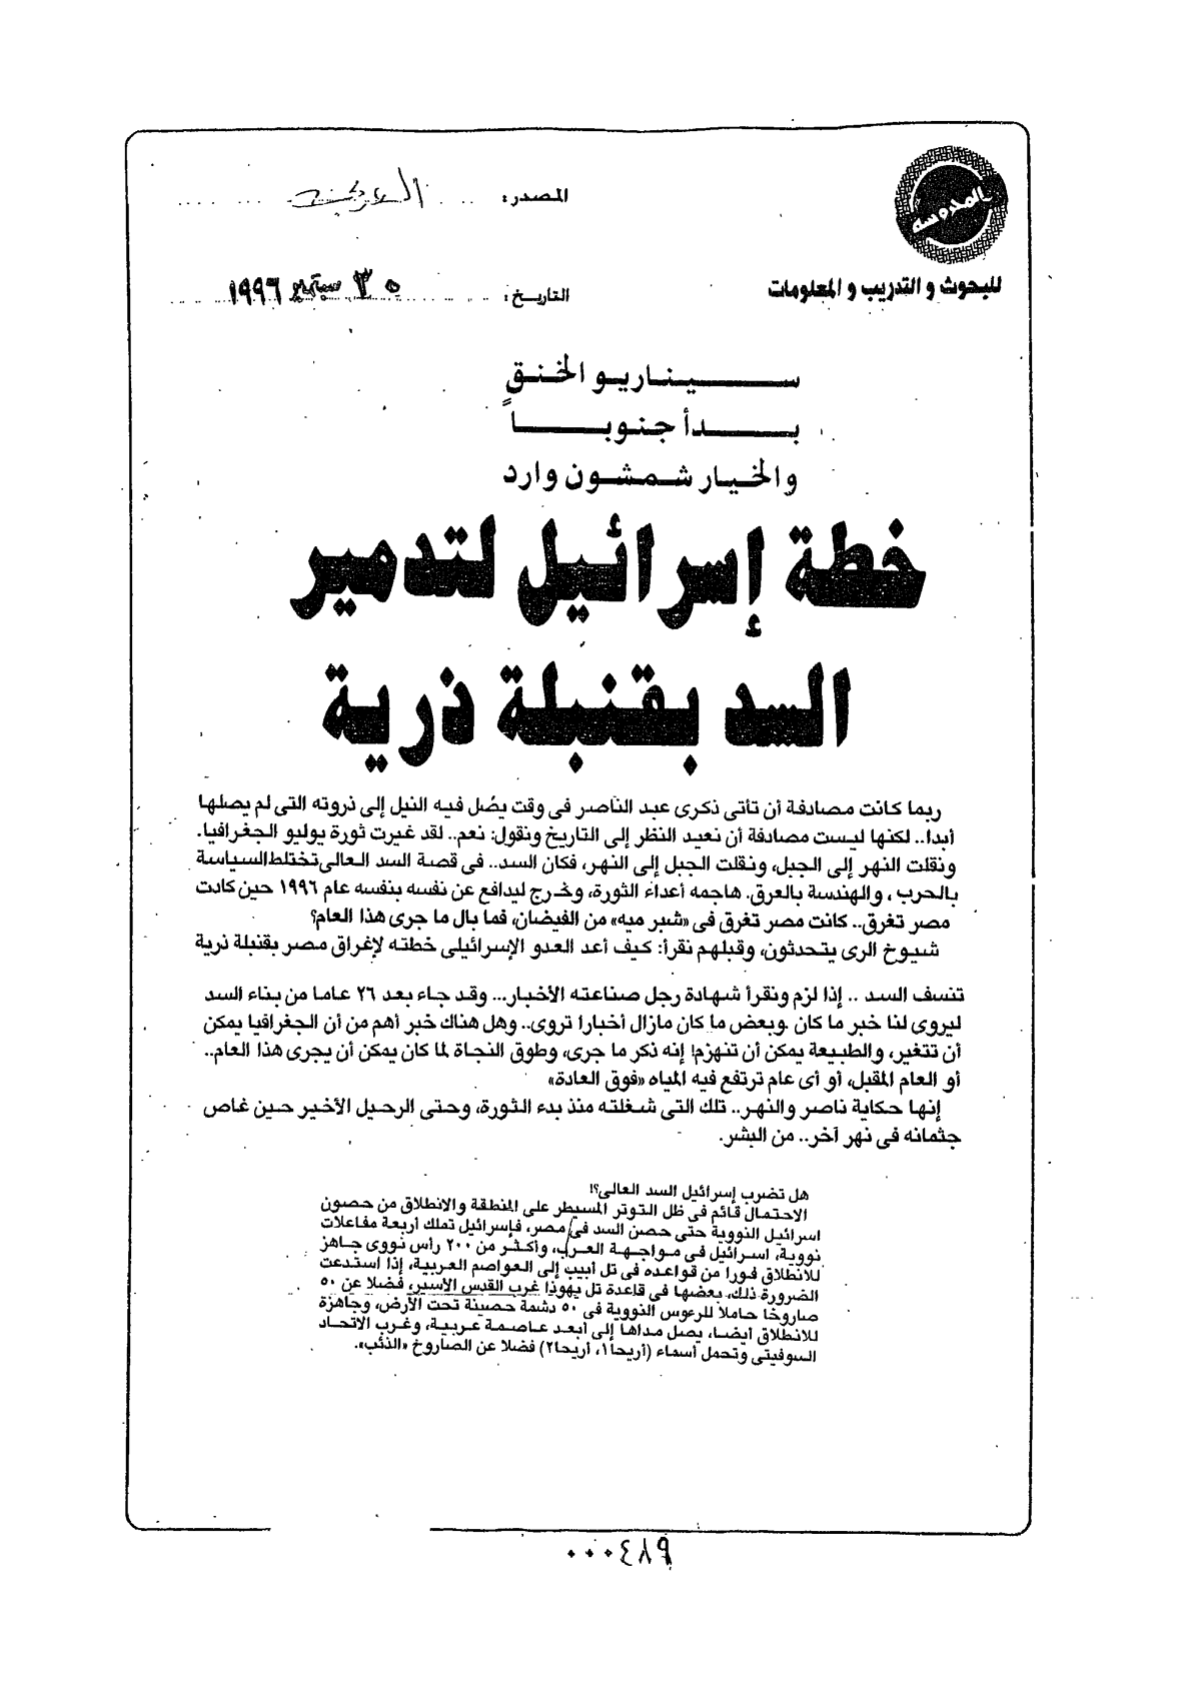 المدوسة
للبحوث و التدريب و المعلومات
المصدر: العربى
التاريخ: ٣٠ سبتمبر ١٩٩٦
سيناريو الخنق
بدأ جنوباً
والخيار شمشون وارد
خطة إسرائيل لتدمير
السد بقنبلة ذرية
ربما كانت مصادفة أن تأتى ذكرى عبد الناصر فى وقت يصُل فيه النيل إلى ذروته التى لم يصلها
أبدا.. لكنها ليست مصادفة أن نعيد النظر إلى التاريخ ونقول: نعم.. لقد غيرت ثورة يوليو الجغرافيا.
ونقلت النهر إلى الجبل، ونقلت الجبل إلى النهر، فكان السد.. فى قصة السد العالى تختلط السياسة
بالحرب ، والهندسة بالعرق. هاجمه أعداء الثورة، وخرج ليدافع عن نفسه بنفسه عام ١٩٩٦ حين كادت
مصر تغرق.. كانت مصر تغرق فى «شبر ميه» من الفيضان، فما بال ما جرى هذا العام؟
شيوخ الرى يتحدثون، وقبلهم نقرأ: كيف أعد العدو الإسرائيلى خطته لإغراق مصر بقنبلة ذرية
تنسف السد .. إذا لزم ونقرأ شهادة رجل صناعته الأخبار... وقد جاء بعد ٢٦ عاما من بناء السد
ليروى لنا خبر ما كان وبعض ما كان مازال أخبارا تروى.. وهل هناك خبر أهم من أن الجغرافيا يمكن
أن تتغير، والطبيعة يمكن أن تنهزم! إنه ذكر ما جرى، وطوق النجاة لما كان يمكن أن يجرى هذا العام..
أو العام المقبل، أو أى عام ترتفع فيه المياه «فوق العادة»
إنها حكاية ناصر والنهر.. تلك التى شغلته منذ بدء الثورة، وحتى الرحيل الأخير حين غاص
جثمانه فى نهر آخر.. من البشر.
هل تضرب إسرائيل السد العالى؟!
الاحتمال قائم فى ظل التوتر المسيطر على المنطقة والانطلاق من حصون
اسرائيل النووية حتى حصن السد فى مصر، فإسرائيل تملك أربعة مفاعلات
نووية، اسرائيل فى مواجهة العرب، وأكثر من ٢٠٠ رأس نووى جاهز
للانطلاق فورا من قواعده فى تل أبيب إلى العواصم العربية، إذا استدعت
الضرورة ذلك، بعضها فى قاعدة تل يهوذا غرب القدس الأسير، فضلا عن ٥٠
صاروخا حاملا للرءوس النووية فى ٥٠ دشمة حصينة تحت الأرض، وجاهزة
للانطلاق أيضا، يصل مداها إلى أبعد عاصمة عربية، وغرب الاتحاد
السوفيتى وتحمل أسماء (أريحا١، أريحا٢) فضلا عن الصاروخ «الذئب».
٠٠٠٤٨٩